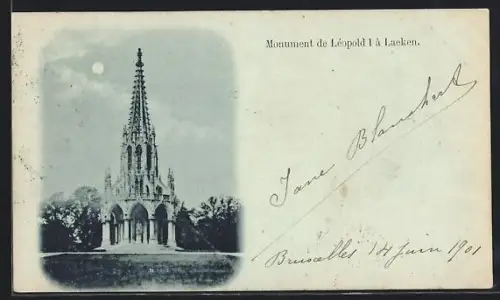 Monument de Léopold I à Laeken.
Jane Blanchert
Bruxelles 14 Juin 1901